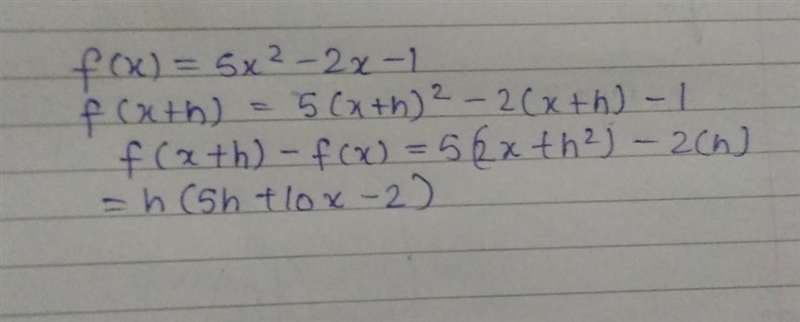 f(x) = 5x² - 2x - 1
f(x+h) = 5(x+h)² - 2(x+h) - 1
f(x+h) - f(x) = 5(2x + h²) - 2(h)
= h(5h + 10x - 2)